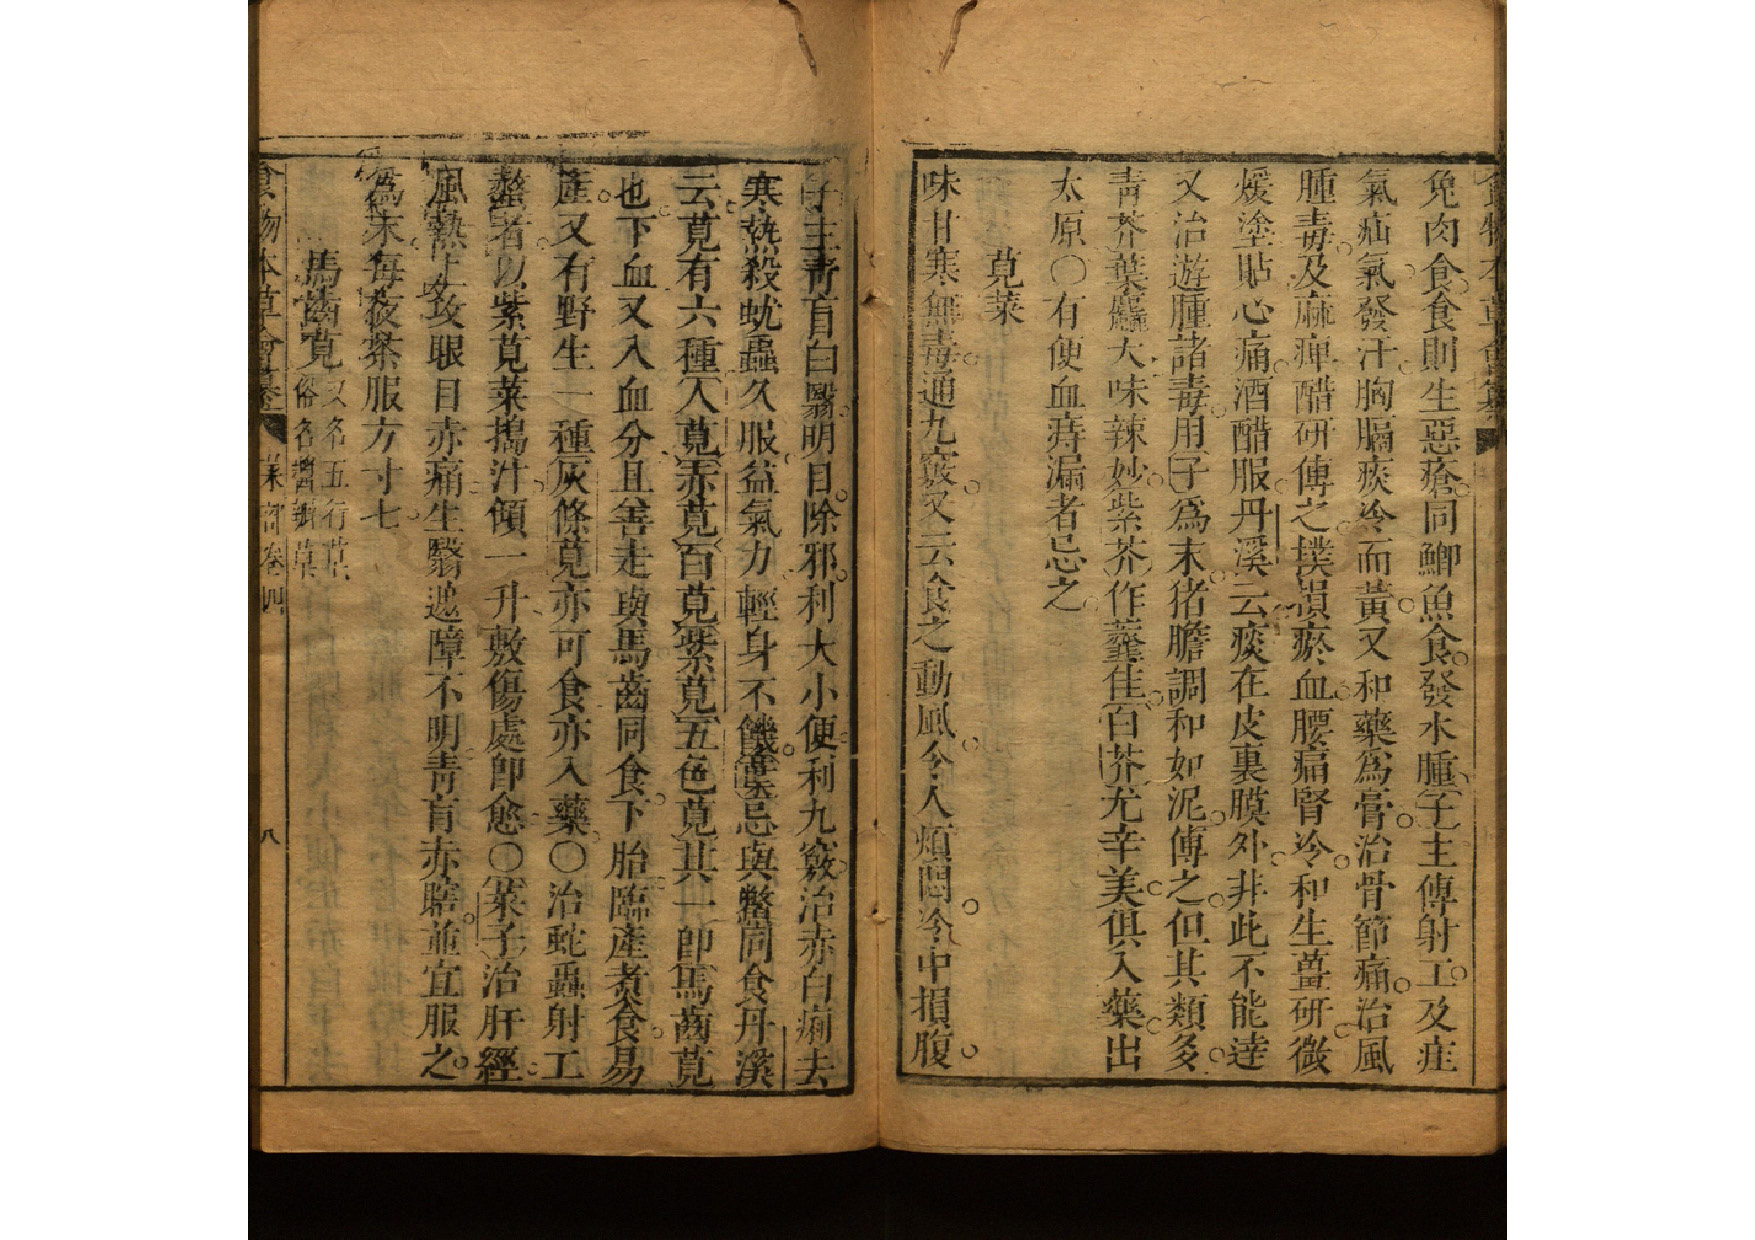 食物本草會纂
兔肉食食則生惡瘡同鯽魚食發水腫子主傅射工及疰
氣疝氣發汗胸膈痰冷而黃又和藥爲膏治骨節痛治風
腫毒及麻痺醋研傅之撲損瘀血腰痛腎冷和生薑研微
煖塗貼心痛酒醋服丹溪云痰在皮裏膜外非此不能達
又治遊腫諸毒用子爲末猪膽調和如泥傅之但其類多
青芥葉麤大味辣妙紫芥作虀佳白芥尤辛美俱入藥出
太原〇有便血痔漏者忌之
莧菜
味甘寒無毒通九竅又云食之動風令人煩悶冷中損腹
子主青盲白翳明目除邪利大小便利九竅治赤白痢去
寒熱殺蚘蟲久服益氣力輕身不饑葉忌與鱉同食丹溪
云莧有六種人莧赤莧白莧紫莧五色莧其一卽馬齒莧
也下血又入血分且善走與馬齒同食下胎臨產煮食易
產又有野生一種灰條莧亦可食亦入藥〇治蚘蟲射工
螫者以紫莧菜搗汁傾一升敷傷處卽愈〇菜子治肝經
風熱上攻眼目赤痛生翳遮障不明青盲赤瞎並宜服之
爲末每夜茶服方寸七
馬齒莧 又名五行草 俗名醬瓣草
食物本草會纂 菜部卷四 八